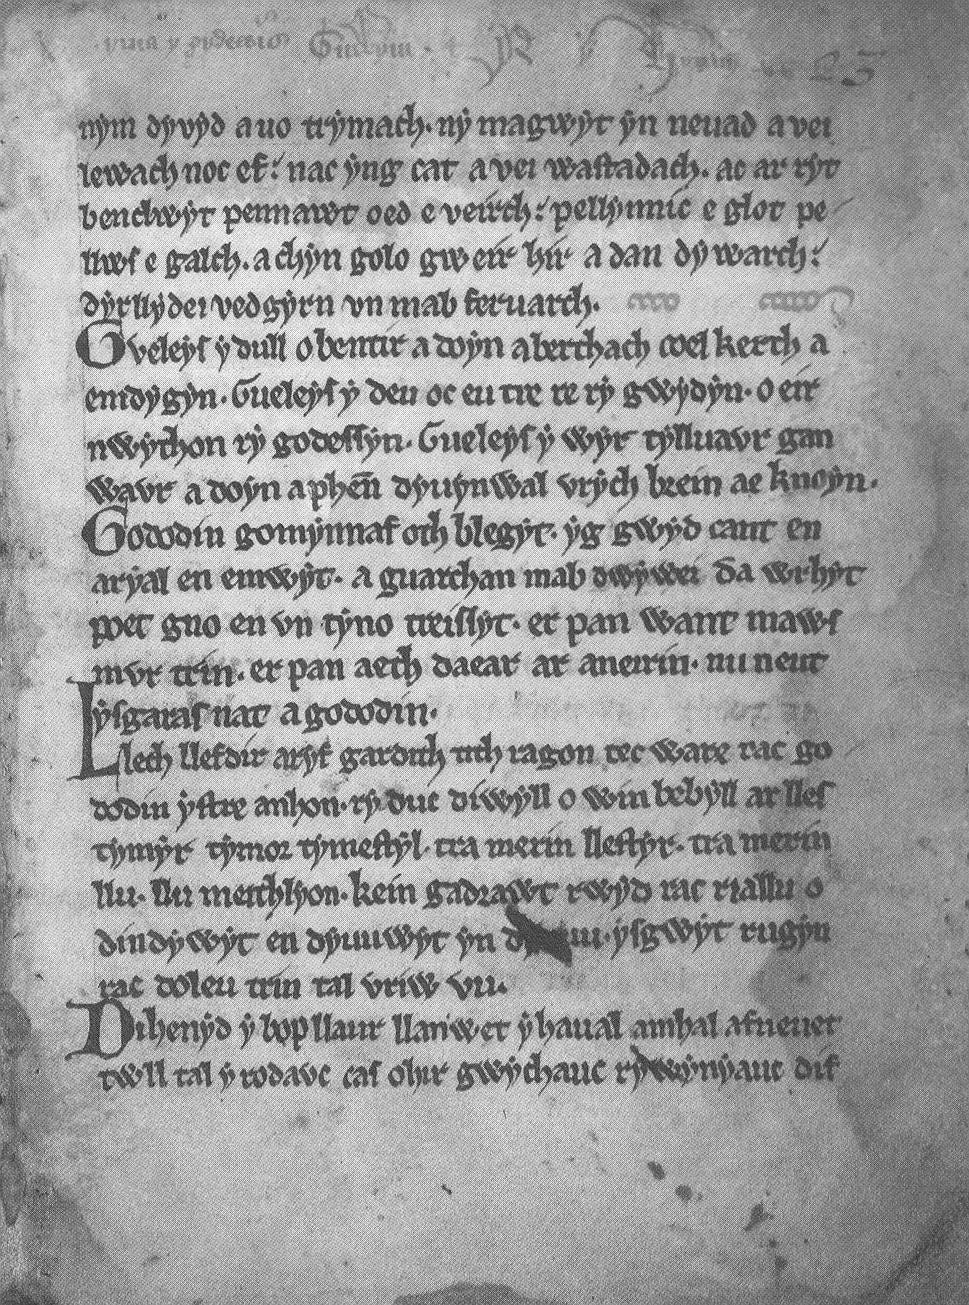 nym dyvyd a uo trymach. ny magwyt yn neuad a vei
lewach noc ef: nac yng cat a vei wastadach. ac ar ryt
benclwyt pennawt oed e veirch: pellynnic e glot pe
llws e galch. a chyn golo gweir hir a dan dywarch:
dyrllydei vedgyrn vn mab feruarch.
Gveleys y dull o bentir a doyn aberthach coelkerth a
emdygyn. Gueleys y deu oc eu tre re ry gwydyn. o eir
nwython ry godessyn. Gueleys y wyr tylluavr gan
wavr a doyn a phen dyuynwal vrych brein ae knoyn.
Gododin gomynnaf oth blegyt. yg gwyd cant en
aryal en emwyt. a guarchan mab dwywei da wrhyt
poet gno en vn tyno treissyt. er pan want maws
mvr trin. er pan aeth daear ar aneirin. nu neut
ysgaras nat a gododin.
Llech llefdir aryf gardith tith ragon tec ware rac go
dodin ystre anhon. ry duc diwyll o win bebyll ar lles
tymyr tymor tymestyl. tra merin llestyr. tra merin
llu. llu meithlyon. kein gadrawt rwyd rac riallu o
dindywyt en dyuuwyt yn ysgwyt rugyn
rac doleu trin tal vriw vu.
Dihenyd y bop llaur llanwet y haual amhal afneuet
twll tal y rodavc cas ohir gwychauc rywynyauc dif